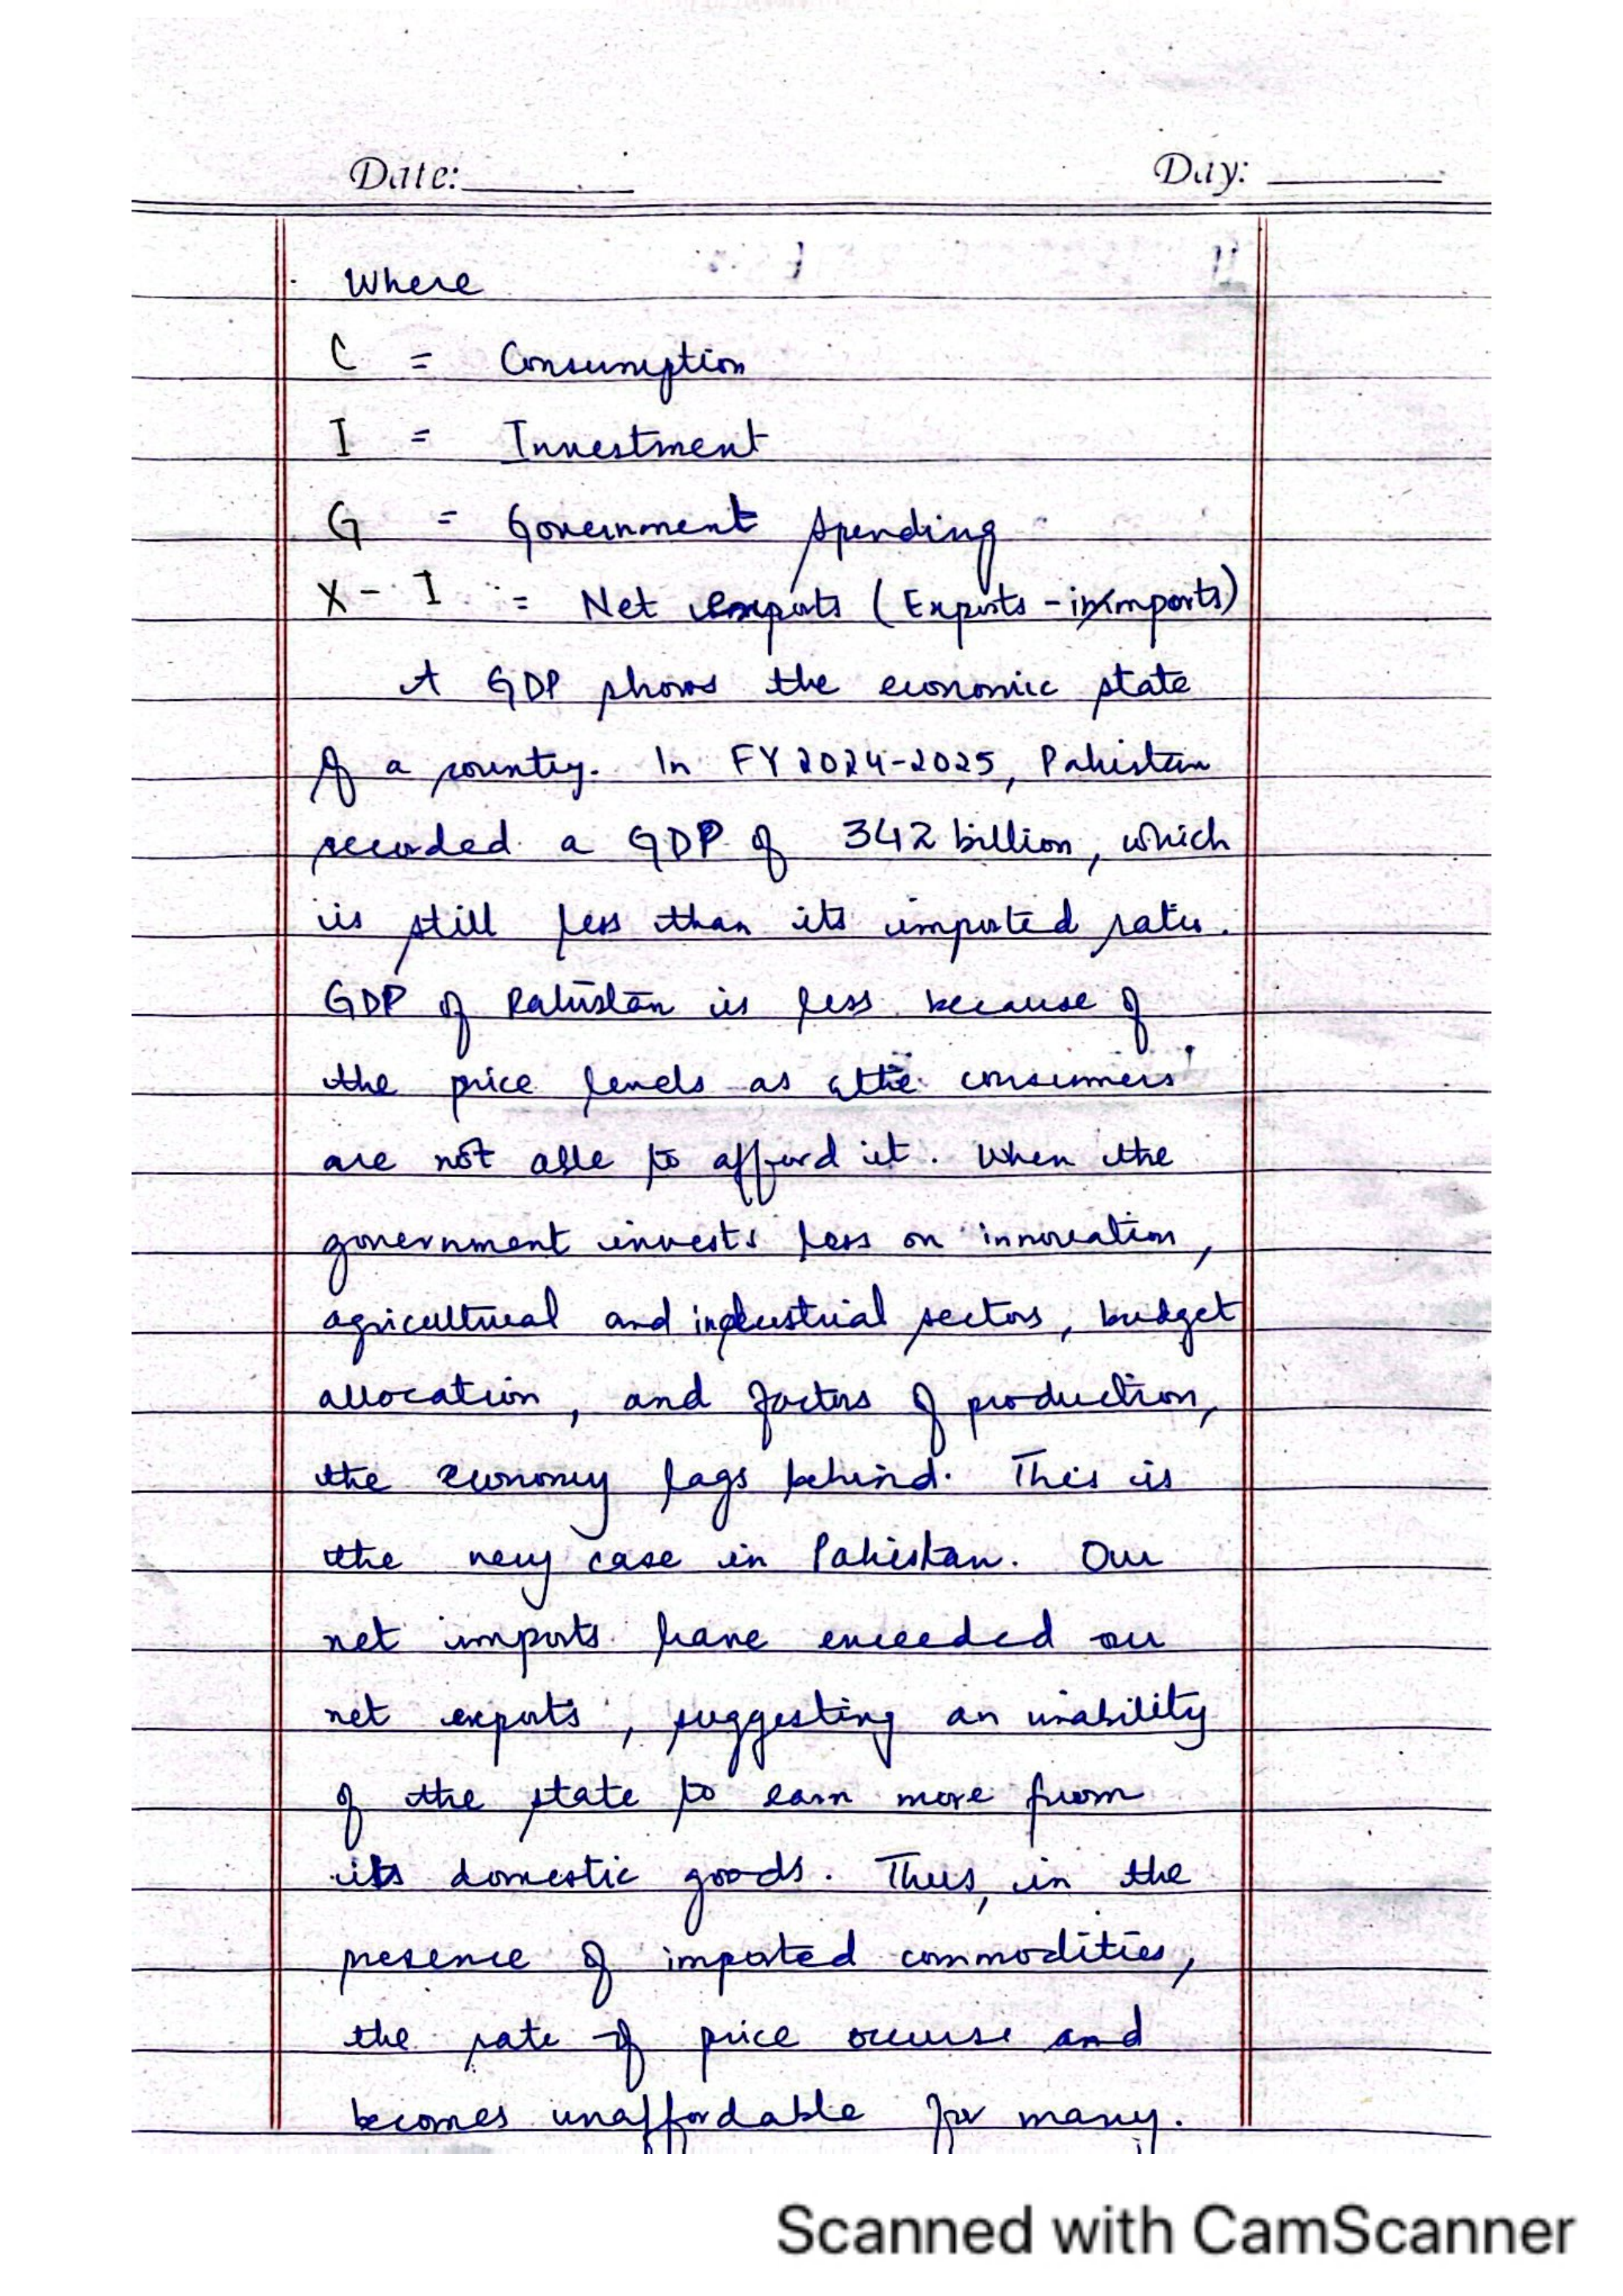 Date:
Day:
Where
C = Consumption
I = Investment
G = Government spending
X - I = Net exports (Exports - imports)
A GDP shows the economic state
of a country. In FY 2024-2025, Pakistan
recorded a GDP of 342 billion, which
is still less than its imported ratio.
GDP of Pakistan is less because of
the price levels as the consumers
are not able to afford it. When the
government invests less on innovation,
agricultural and industrial sectors, budget
allocation, and factors of production,
the economy lags behind. This is
the very case in Pakistan. Our
net imports have exceeded our
net exports, suggesting an inability
of the state to earn more from
its domestic goods. Thus, in the
presence of imported commodities,
the rate of price and
becomes unaffordable for many.
Scanned with CamScanner